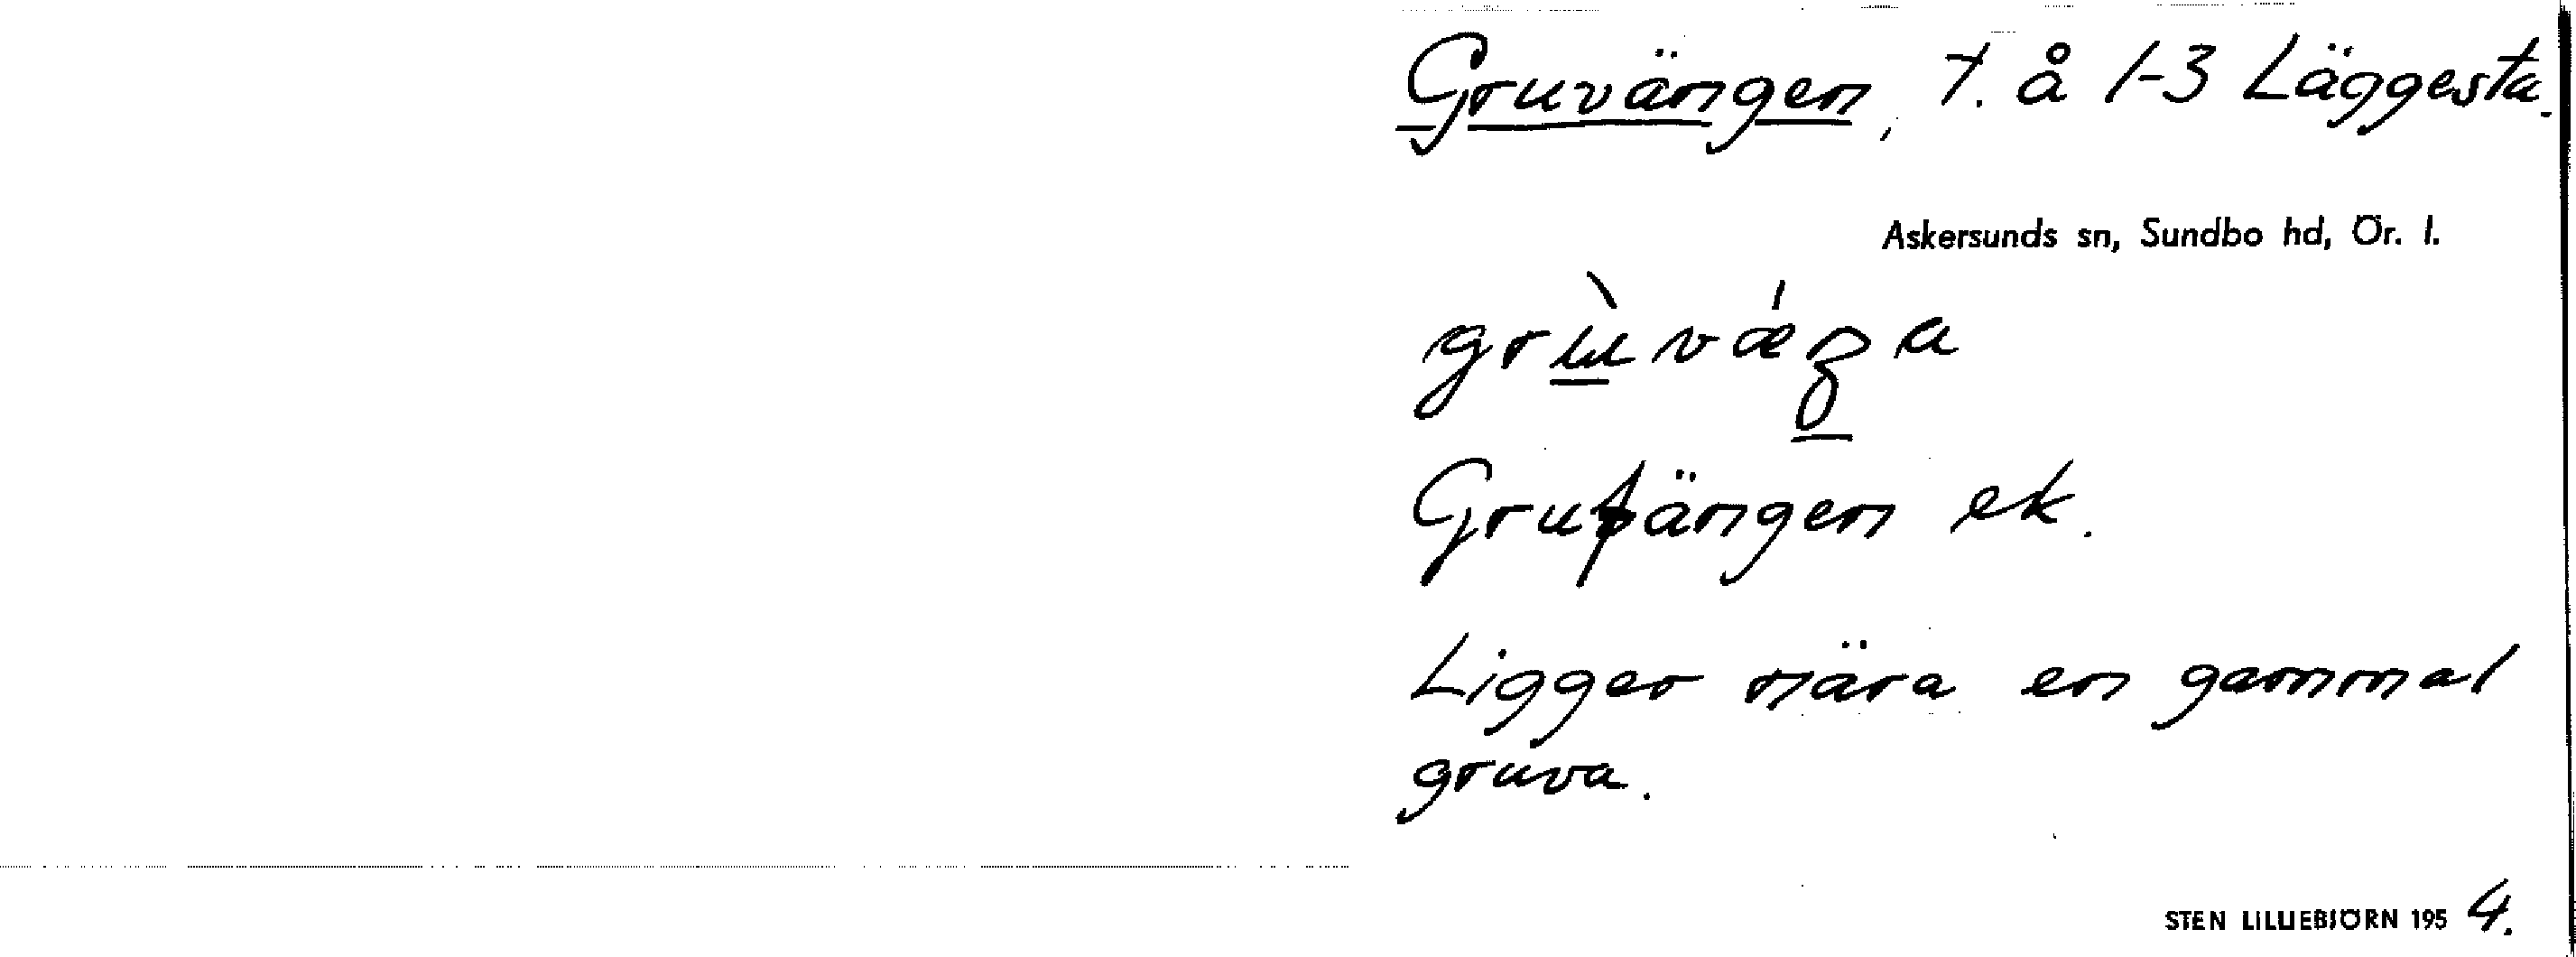 Gruvängen, t. å 1-3 Läggesta.
Askersunds sn, Sundbo hd, Ör. l.
Grufängen ek.
Ligger nära en gammal
gruva.
STEN LILLIEBJÖRN 1954.